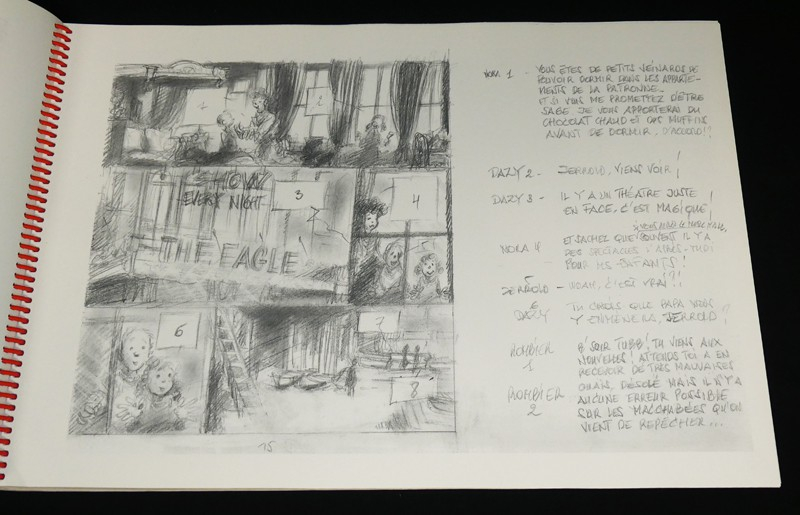 1
2
SHOW
EVERY NIGHT
3
THE EAGLE
4
6
7
8
15
1 - VOUS ÊTES DE PETITS VEINARDS DE
POUVOIR DORMIR DANS LES APPARTE-
MENTS DE LA PATRONNE...
ET SI VOUS ME PROMETTEZ D'ÊTRE
SAGE JE VOUS APPORTERAI DU
CHOCOLAT CHAUD ET MUFFINS
AVANT DE DORMIR, D'ACCORD!?
DAZY 2 - JERROLD, VIENS VOIR!
DAZY 3 - IL Y A UN THÉATRE JUSTE
EN FACE, C'EST MAGIQUE!
NORA 4 ET SACHEZ QUE SOUVENT IL Y A
DES SPECTACLES
POUR
JERROLD - C'EST VRAI!?!
DAZY 6 TU CROIS QUE PAPA VOUS
Y EMMÈNERA, JERROLD?
1 TU VIENS AUX
NOUVELLES! ATTENDS TOI A EN
RECEVOIR DE TRÈS MAUVAISES
2 DÉSOLÉ MAIS IL N'Y A
AUCUNE ERREUR POSSIBLE
SUR LES MACCHABÉES QU'ON
VIENT DE REPÊCHER...